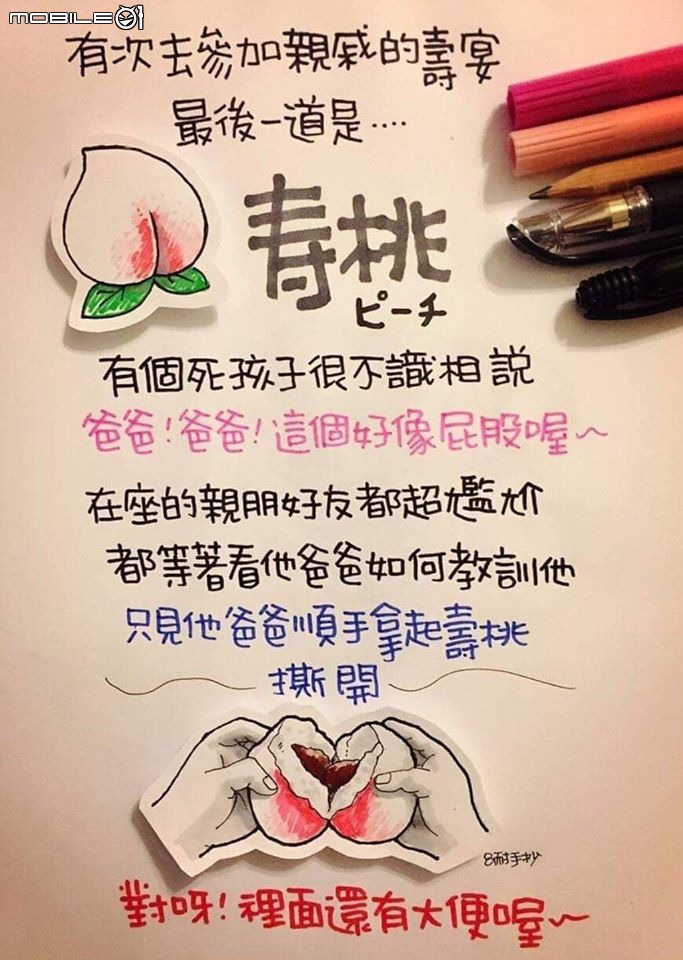 MOBILE01
有次去參加親戚的壽宴
最後一道是....
寿桃
ピーチ
有個死孩子很不識相説
爸爸!爸爸!這個好像屁股喔~
在座的親朋好友都超尷尬
都等著看他爸爸如何教訓他
只見他爸爸順手拿起壽桃
撕開
8耐手抄
對呀!裡面還有大便喔~